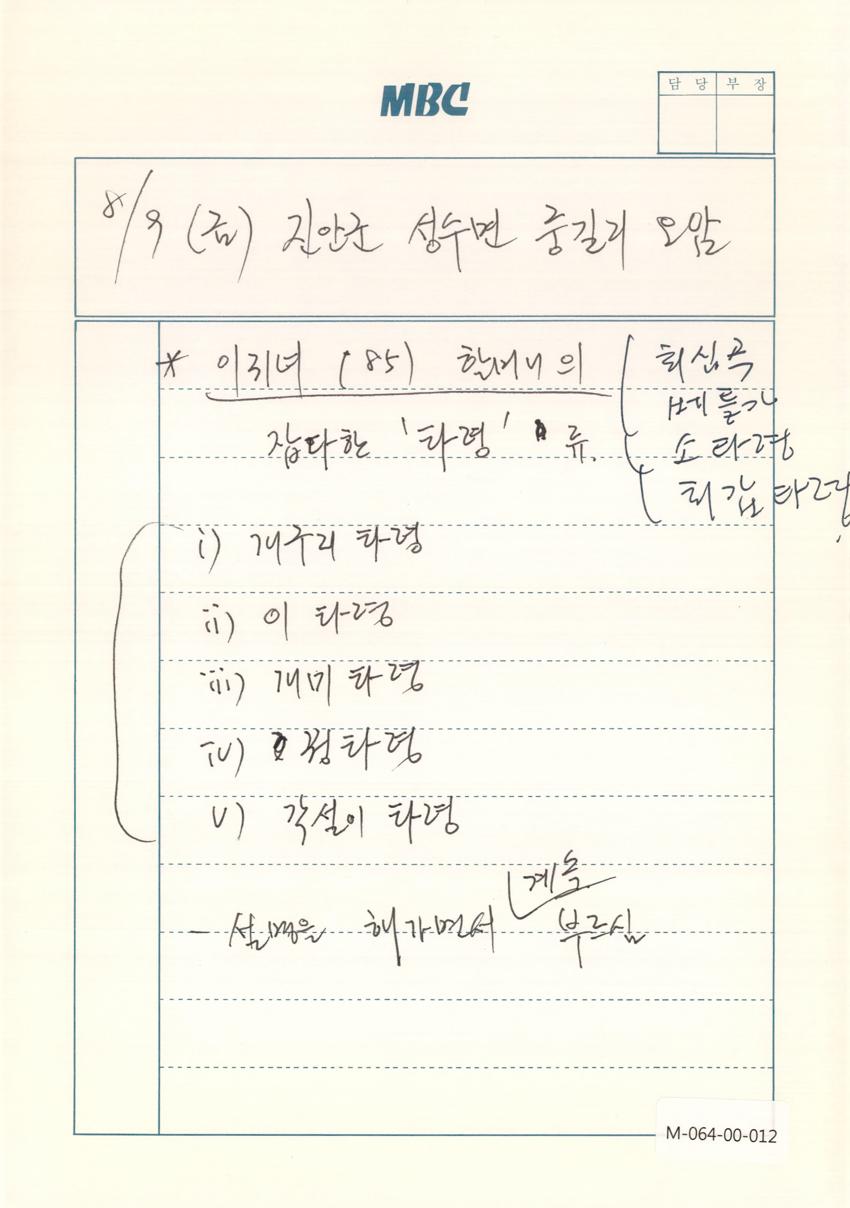 MBC
담 당 부 장
8/9 (금) 진안군 성수면 중길리 오암
* 이귀녀 (85) 할머니의
잡다한 '타령' 류.
회심곡
베틀가
소타령
회갑타령
i) 개구리 타령
ii) 이 타령
iii) 개미 타령
iv) 꿩타령
v) 각설이 타령
- 설명을 해가면서 계속 부르심
M-064-00-012